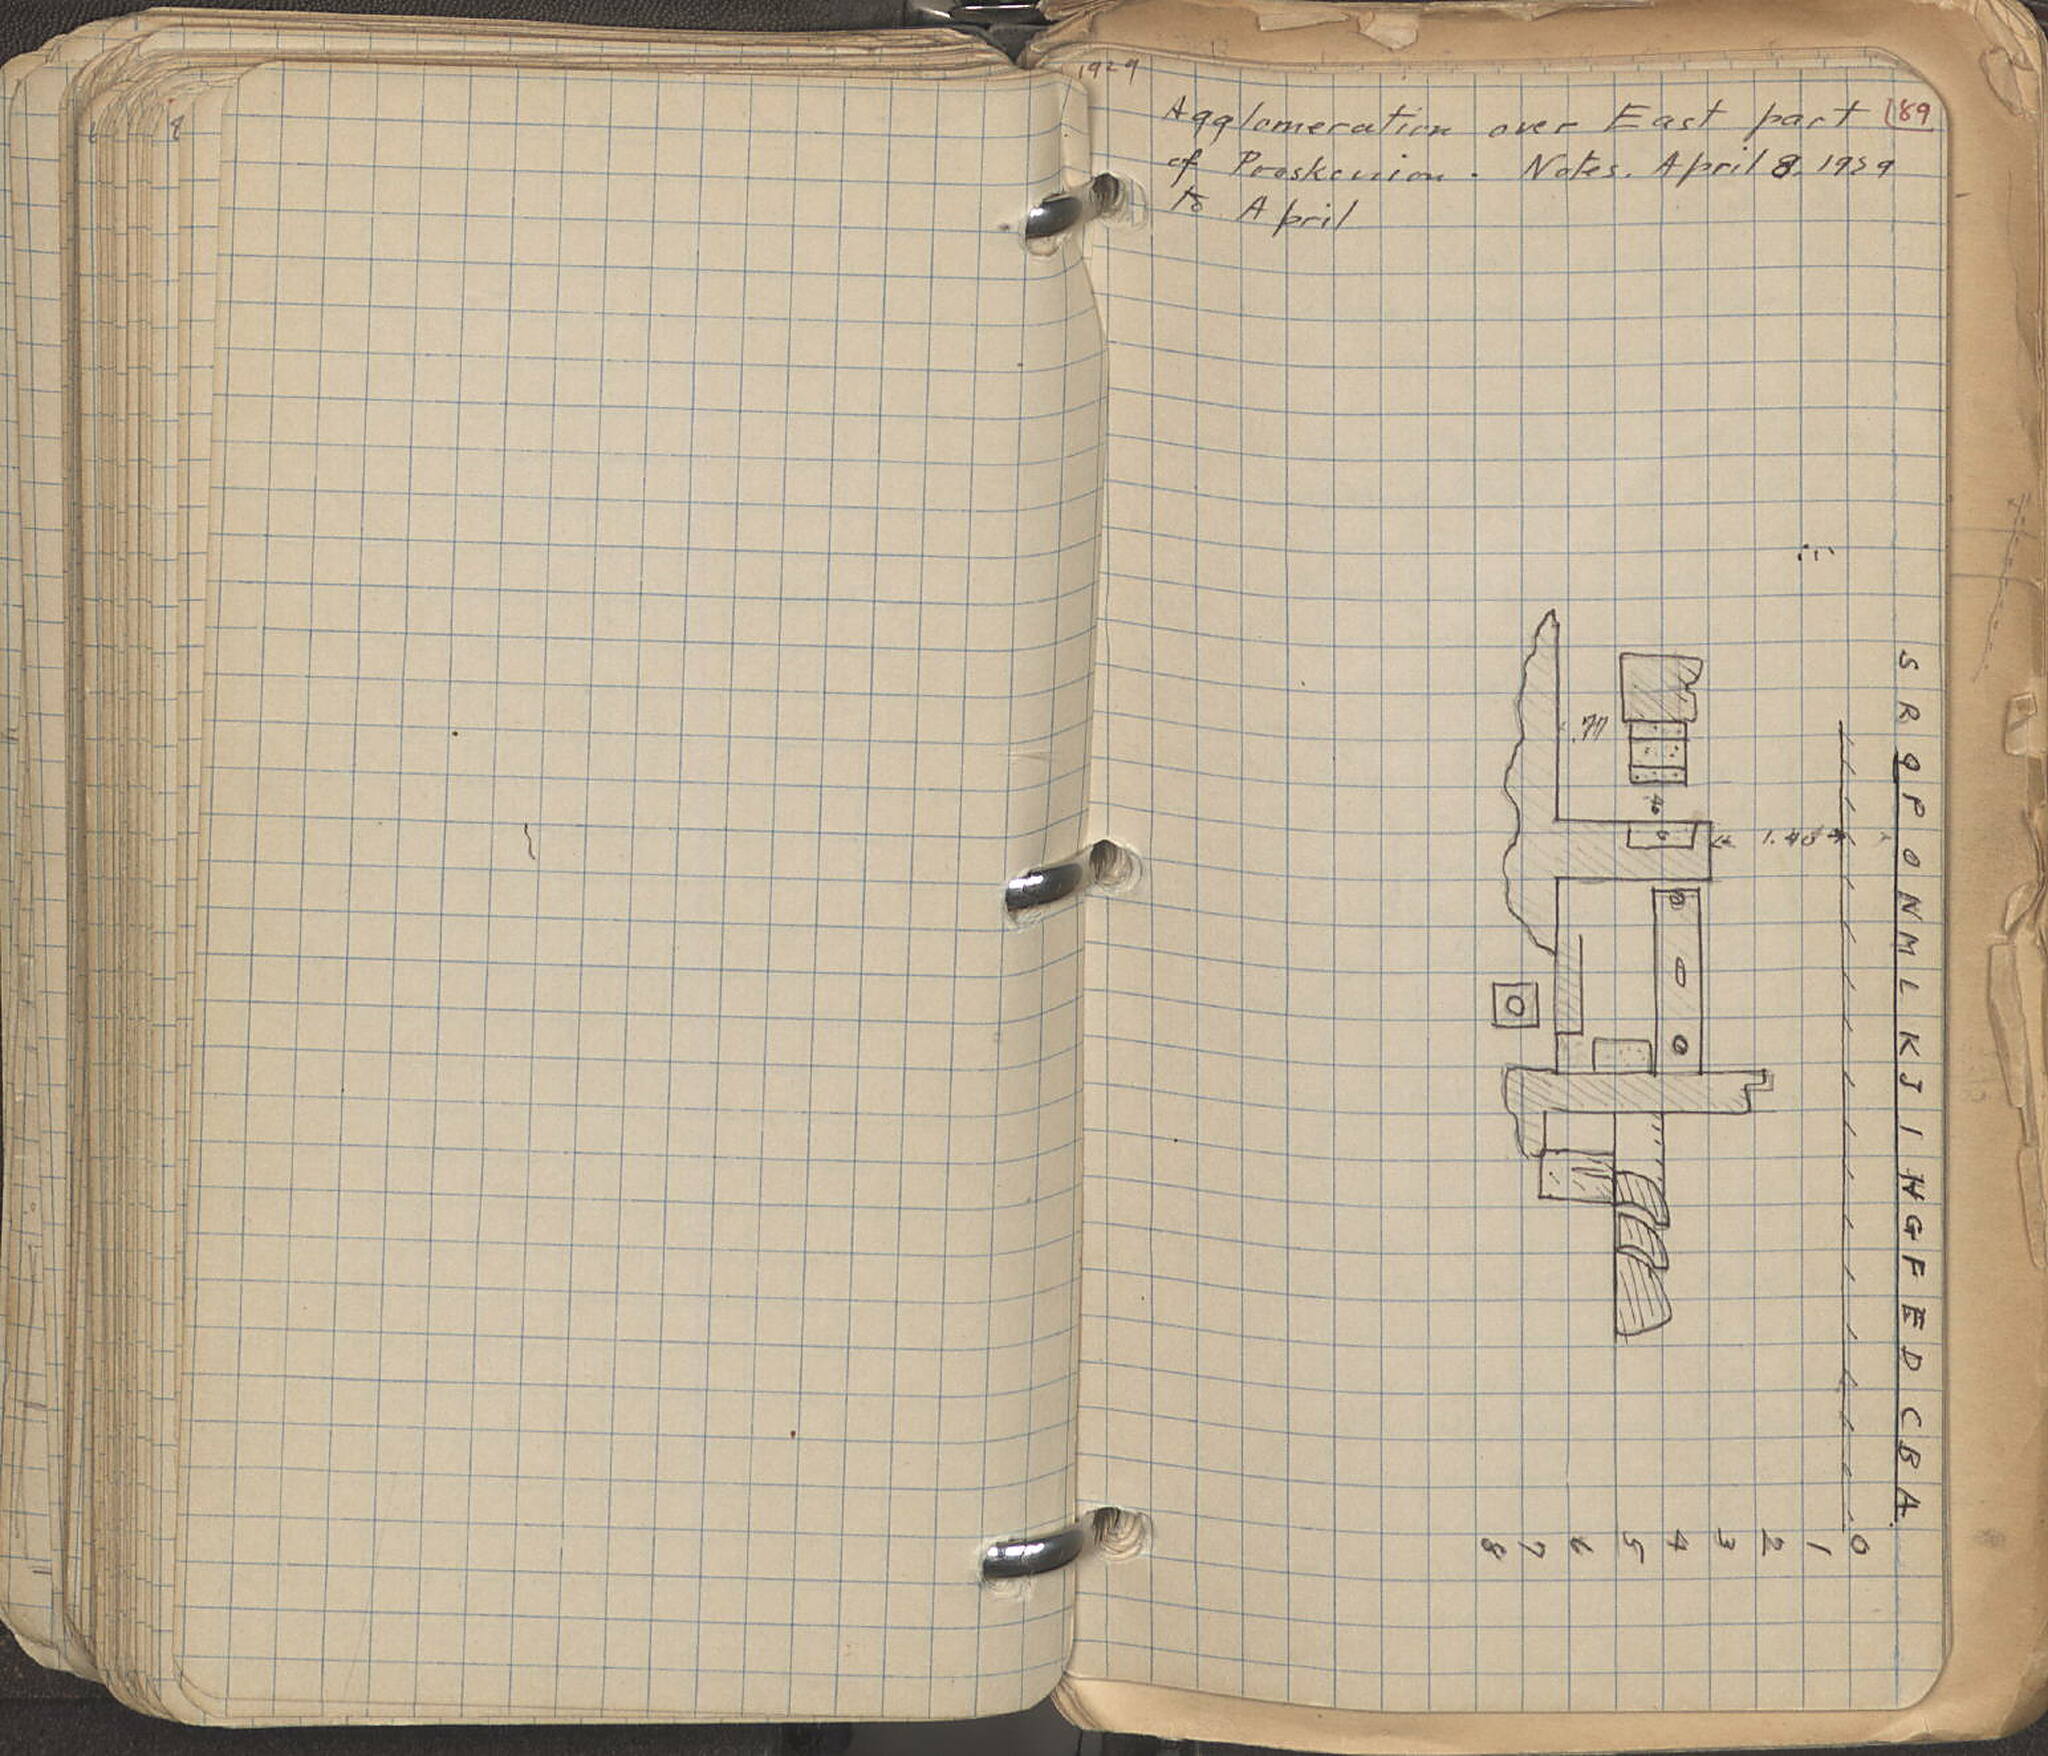 1929
Agglomeration over East part 189
of Proskenion. Notes. April 8, 1929
to April
.77
.40
1.40
S R Q P O N M L K J I H G F E D C B A.
0 1 2 3 4 5 6 7 8